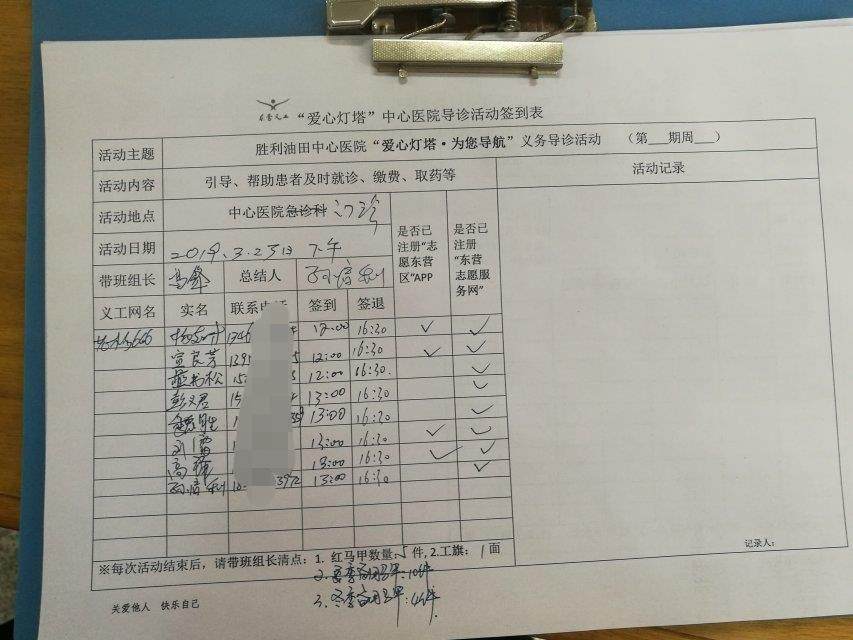 东营义工
“爱心灯塔”中心医院导诊活动签到表
活动主题 胜利油田中心医院“爱心灯塔·为您导航”义务导诊活动 （第___期周___）
活动内容 引导、帮助患者及时就诊、缴费、取药等 活动记录
活动地点 中心医院急诊科 门诊
活动日期 2019.3.25日 下午
带班组长 总结人 孙清利
是否已注册“志愿东营区”APP
是否已注册“东营志愿服务网”
义工网名 实名 联系电话 签到 签退
12:00 16:30 ✓ ✓
宣良芳 139 5 12:00 16:30 ✓ ✓
松 15 12:00 16:30 ✓
彭义君 15 13:00 16:30 ✓
13:00 16:30 ✓
刘 13:00 16:30 ✓ ✓
高 13:00 16:30 ✓ ✓
孙清利 3972 13:00 16:30 ✓
记录人：
※每次活动结束后，请带班组长清点：1. 红马甲数量：5件，2.工旗：1面
2. 夏季 10件
3. 冬季 4件.
关爱他人 快乐自己